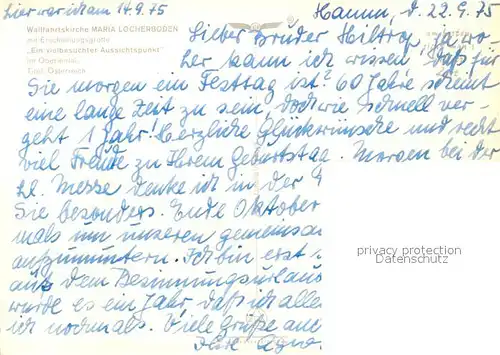 hier war ich am 14.9.75
Hamm, d. 22.9.75
Wallfahrtskirche MARIA LOCHERBODEN
mit Erscheinungsgrotte
"Ein vielbesuchter Aussichtspunkt"
im Oberinntal,
Tirol, Österreich
Lieber Bruder Hiltrop, ja wo-
her kann ich wissen, daß für
Sie morgen ein Festtag ist? 60 Jahre scheint
eine lange Zeit zu sein, doch wie schnell ver-
geht 1 Jahr! Herzliche Glückwünsche und recht
viel Freude zu Ihrem Geburtstag. Morgen bei der
hl. Messe denke ich in der
Sie besonders. Ende Oktober
mals um unseren gemeinsam
aufzumuntern. Ich bin erst
aus dem Besinnungsurlaub
würde es ein Jahr, daß ich alle
ich nochmals. Viele Grüße
Ihre
privacy protection
Datenschutz